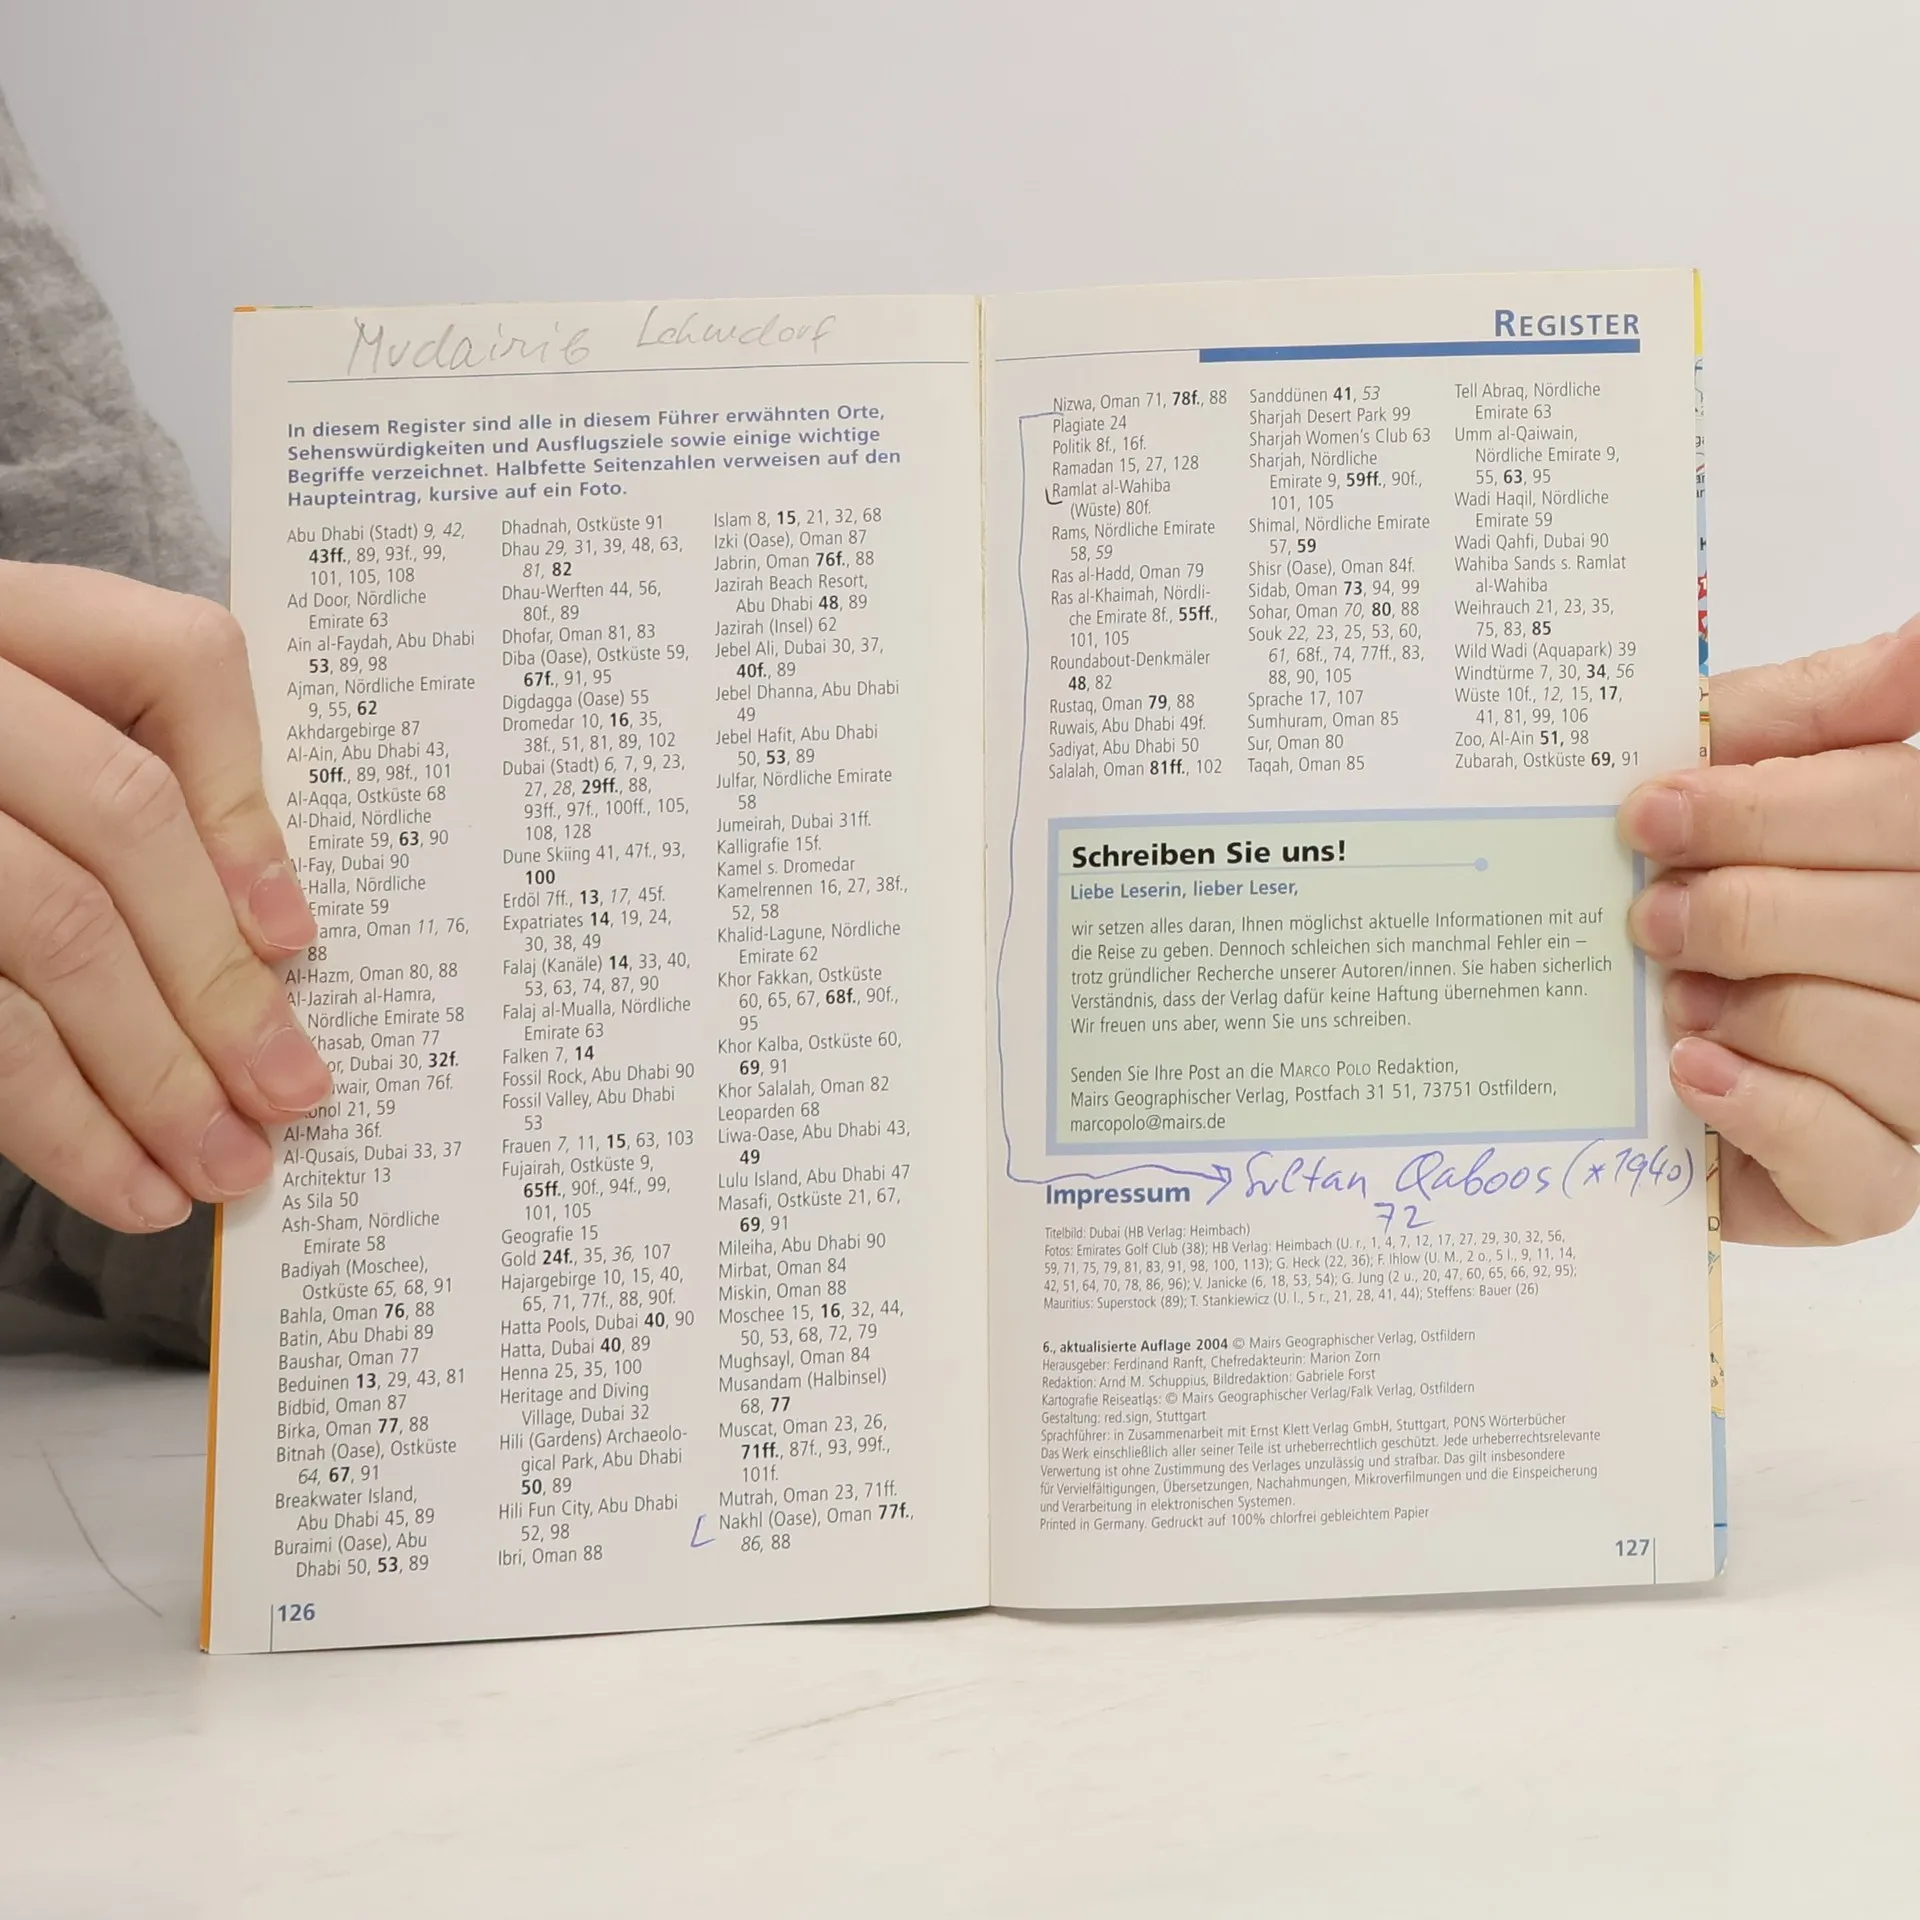 Mudairib Lehmdorf
In diesem Register sind alle in diesem Führer erwähnten Orte,
Sehenswürdigkeiten und Ausflugsziele sowie einige wichtige
Begriffe verzeichnet. Halbfette Seitenzahlen verweisen auf den
Haupteintrag, kursive auf ein Foto.
Abu Dhabi (Stadt) 9, 42,
43ff., 89, 93f., 99,
101, 105, 108
Ad Door, Nördliche
Emirate 63
Ain al-Faydah, Abu Dhabi
53, 89, 98
Ajman, Nördliche Emirate
9, 55, 62
Akhdargebirge 87
Al-Ain, Abu Dhabi 43,
50ff., 89, 98f., 101
Al-Aqqa, Ostküste 68
Al-Dhaid, Nördliche
Emirate 59, 63, 90
Al-Fay, Dubai 90
-Halla, Nördliche
Emirate 59
amra, Oman 11, 76,
88
Al-Hazm, Oman 80, 88
Al-Jazirah al-Hamra,
Nördliche Emirate 58
Khasab, Oman 77
or, Dubai 30, 32f.
wair, Oman 76f.
ohol 21, 59
Al-Maha 36f.
Al-Qusais, Dubai 33, 37
Architektur 13
As Sila 50
Ash-Sham, Nördliche
Emirate 58
Badiyah (Moschee),
Ostküste 65, 68, 91
Bahla, Oman 76, 88
Batin, Abu Dhabi 89
Baushar, Oman 77
Beduinen 13, 29, 43, 81
Bidbid, Oman 87
Birka, Oman 77, 88
Bitnah (Oase), Ostküste
64, 67, 91
Breakwater Island,
Abu Dhabi 45, 89
Buraimi (Oase), Abu
Dhabi 50, 53, 89
Dhadnah, Ostküste 91
Dhau 29, 31, 39, 48, 63,
81, 82
Dhau-Werften 44, 56,
80f., 89
Dhofar, Oman 81, 83
Diba (Oase), Ostküste 59,
67f., 91, 95
Digdagga (Oase) 55
Dromedar 10, 16, 35,
38f., 51, 81, 89, 102
Dubai (Stadt) 6, 7, 9, 23,
27, 28, 29ff., 88,
93ff., 97f., 100ff., 105,
108, 128
Dune Skiing 41, 47f., 93,
100
Erdöl 7ff, 13, 17, 45f.
Expatriates 14, 19, 24,
30, 38, 49
Falaj (Kanäle) 14, 33, 40,
53, 63, 74, 87, 90
Falaj al-Mualla, Nördliche
Emirate 63
Falken 7, 14
Fossil Rock, Abu Dhabi 90
Fossil Valley, Abu Dhabi
53
Frauen 7, 11, 15, 63, 103
Fujairah, Ostküste 9,
65ff., 90f., 94f., 99,
101, 105
Geografie 15
Gold 24f., 35, 36, 107
Hajargebirge 10, 15, 40,
65, 71, 77f., 88, 90f.
Hatta Pools, Dubai 40, 90
Hatta, Dubai 40, 89
Henna 25, 35, 100
Heritage and Diving
Village, Dubai 32
Hili (Gardens) Archaeolo-
gical Park, Abu Dhabi
50, 89
Hili Fun City, Abu Dhabi
52, 98
Ibri, Oman 88
Islam 8, 15, 21, 32, 68
Izki (Oase), Oman 87
Jabrin, Oman 76f., 88
Jazirah Beach Resort,
Abu Dhabi 48, 89
Jazirah (Insel) 62
Jebel Ali, Dubai 30, 37,
40f., 89
Jebel Dhanna, Abu Dhabi
49
Jebel Hafit, Abu Dhabi
50, 53, 89
Julfar, Nördliche Emirate
58
Jumeirah, Dubai 31ff.
Kalligrafie 15f.
Kamel s. Dromedar
Kamelrennen 16, 27, 38f.,
52, 58
Khalid-Lagune, Nördliche
Emirate 62
Khor Fakkan, Ostküste
60, 65, 67, 68f., 90f.,
95
Khor Kalba, Ostküste 60,
69, 91
Khor Salalah, Oman 82
Leoparden 68
Liwa-Oase, Abu Dhabi 43,
49
Lulu Island, Abu Dhabi 47
Masafi, Ostküste 21, 67,
69, 91
Mileiha, Abu Dhabi 90
Mirbat, Oman 84
Miskin, Oman 88
Moschee 15, 16, 32, 44,
50, 53, 68, 72, 79
Mughsayl, Oman 84
Musandam (Halbinsel)
68, 77
Muscat, Oman 23, 26,
71ff., 87f., 93, 99f.,
101f.
Mutrah, Oman 23, 71ff.
Nakhl (Oase), Oman 77f.,
86, 88
126
REGISTER
Nizwa, Oman 71, 78f., 88
Plagiate 24
Politik 8f., 16f.
Ramadan 15, 27, 128
Ramlat al-Wahiba
(Wüste) 80f.
Rams, Nördliche Emirate
58, 59
Ras al-Hadd, Oman 79
Ras al-Khaimah, Nördli-
che Emirate 8f., 55ff.,
101, 105
Roundabout-Denkmäler
48, 82
Rustaq, Oman 79, 88
Ruwais, Abu Dhabi 49f.
Sadiyat, Abu Dhabi 50
Salalah, Oman 81ff., 102
Sanddünen 41, 53
Sharjah Desert Park 99
Sharjah Women's Club 63
Sharjah, Nördliche
Emirate 9, 59ff., 90f.,
101, 105
Shimal, Nördliche Emirate
57, 59
Shisr (Oase), Oman 84f.
Sidab, Oman 73, 94, 99
Sohar, Oman 70, 80, 88
Souk 22, 23, 25, 53, 60,
61, 68f., 74, 77ff., 83,
88, 90, 105
Sprache 17, 107
Sumhuram, Oman 85
Sur, Oman 80
Taqah, Oman 85
Tell Abraq, Nördliche
Emirate 63
Umm al-Qaiwain,
Nördliche Emirate 9,
55, 63, 95
Wadi Haqil, Nördliche
Emirate 59
Wadi Qahfi, Dubai 90
Wahiba Sands s. Ramlat
al-Wahiba
Weihrauch 21, 23, 35,
75, 83, 85
Wild Wadi (Aquapark) 39
Windtürme 7, 30, 34, 56
Wüste 10f., 12, 15, 17,
41, 81, 99, 106
Zoo, Al-Ain 51, 98
Zubarah, Ostküste 69, 91
Schreiben Sie uns!
Liebe Leserin, lieber Leser,
wir setzen alles daran, Ihnen möglichst aktuelle Informationen mit auf
die Reise zu geben. Dennoch schleichen sich manchmal Fehler ein –
trotz gründlicher Recherche unserer Autoren/innen. Sie haben sicherlich
Verständnis, dass der Verlag dafür keine Haftung übernehmen kann.
Wir freuen uns aber, wenn Sie uns schreiben.
Senden Sie Ihre Post an die MARCO POLO Redaktion,
Mairs Geographischer Verlag, Postfach 31 51, 73751 Ostfildern,
marcopolo@mairs.de
Sultan Qaboos (*1940)
72
Impressum
Titelbild: Dubai (HB Verlag: Heimbach)
Fotos: Emirates Golf Club (38); HB Verlag: Heimbach (U. r., 1, 4, 7, 12, 17, 27, 29, 30, 32, 56,
59, 71, 75, 79, 81, 83, 91, 98, 100, 113); G. Heck (22, 36); F. Ihlow (U. M., 2 o., 5 l., 9, 11, 14,
42, 51, 64, 70, 78, 86, 96); V. Janicke (6, 18, 53, 54); G. Jung (2 u., 20, 47, 60, 65, 66, 92, 95);
Mauritius: Superstock (89); T. Stankiewicz (U. l., 5 r., 21, 28, 41, 44); Steffens: Bauer (26)
6., aktualisierte Auflage 2004 © Mairs Geographischer Verlag, Ostfildern
Herausgeber: Ferdinand Ranft, Chefredakteurin: Marion Zorn
Redaktion: Arnd M. Schuppius, Bildredaktion: Gabriele Forst
Kartografie Reiseatlas: © Mairs Geographischer Verlag/Falk Verlag, Ostfildern
Gestaltung: red.sign, Stuttgart
Sprachführer: in Zusammenarbeit mit Ernst Klett Verlag GmbH, Stuttgart, PONS Wörterbücher
Das Werk einschließlich aller seiner Teile ist urheberrechtlich geschützt. Jede urheberrechtsrelevante
Verwertung ist ohne Zustimmung des Verlages unzulässig und strafbar. Das gilt insbesondere
für Vervielfältigungen, Übersetzungen, Nachahmungen, Mikroverfilmungen und die Einspeicherung
und Verarbeitung in elektronischen Systemen.
Printed in Germany. Gedruckt auf 100% chlorfrei gebleichtem Papier
127